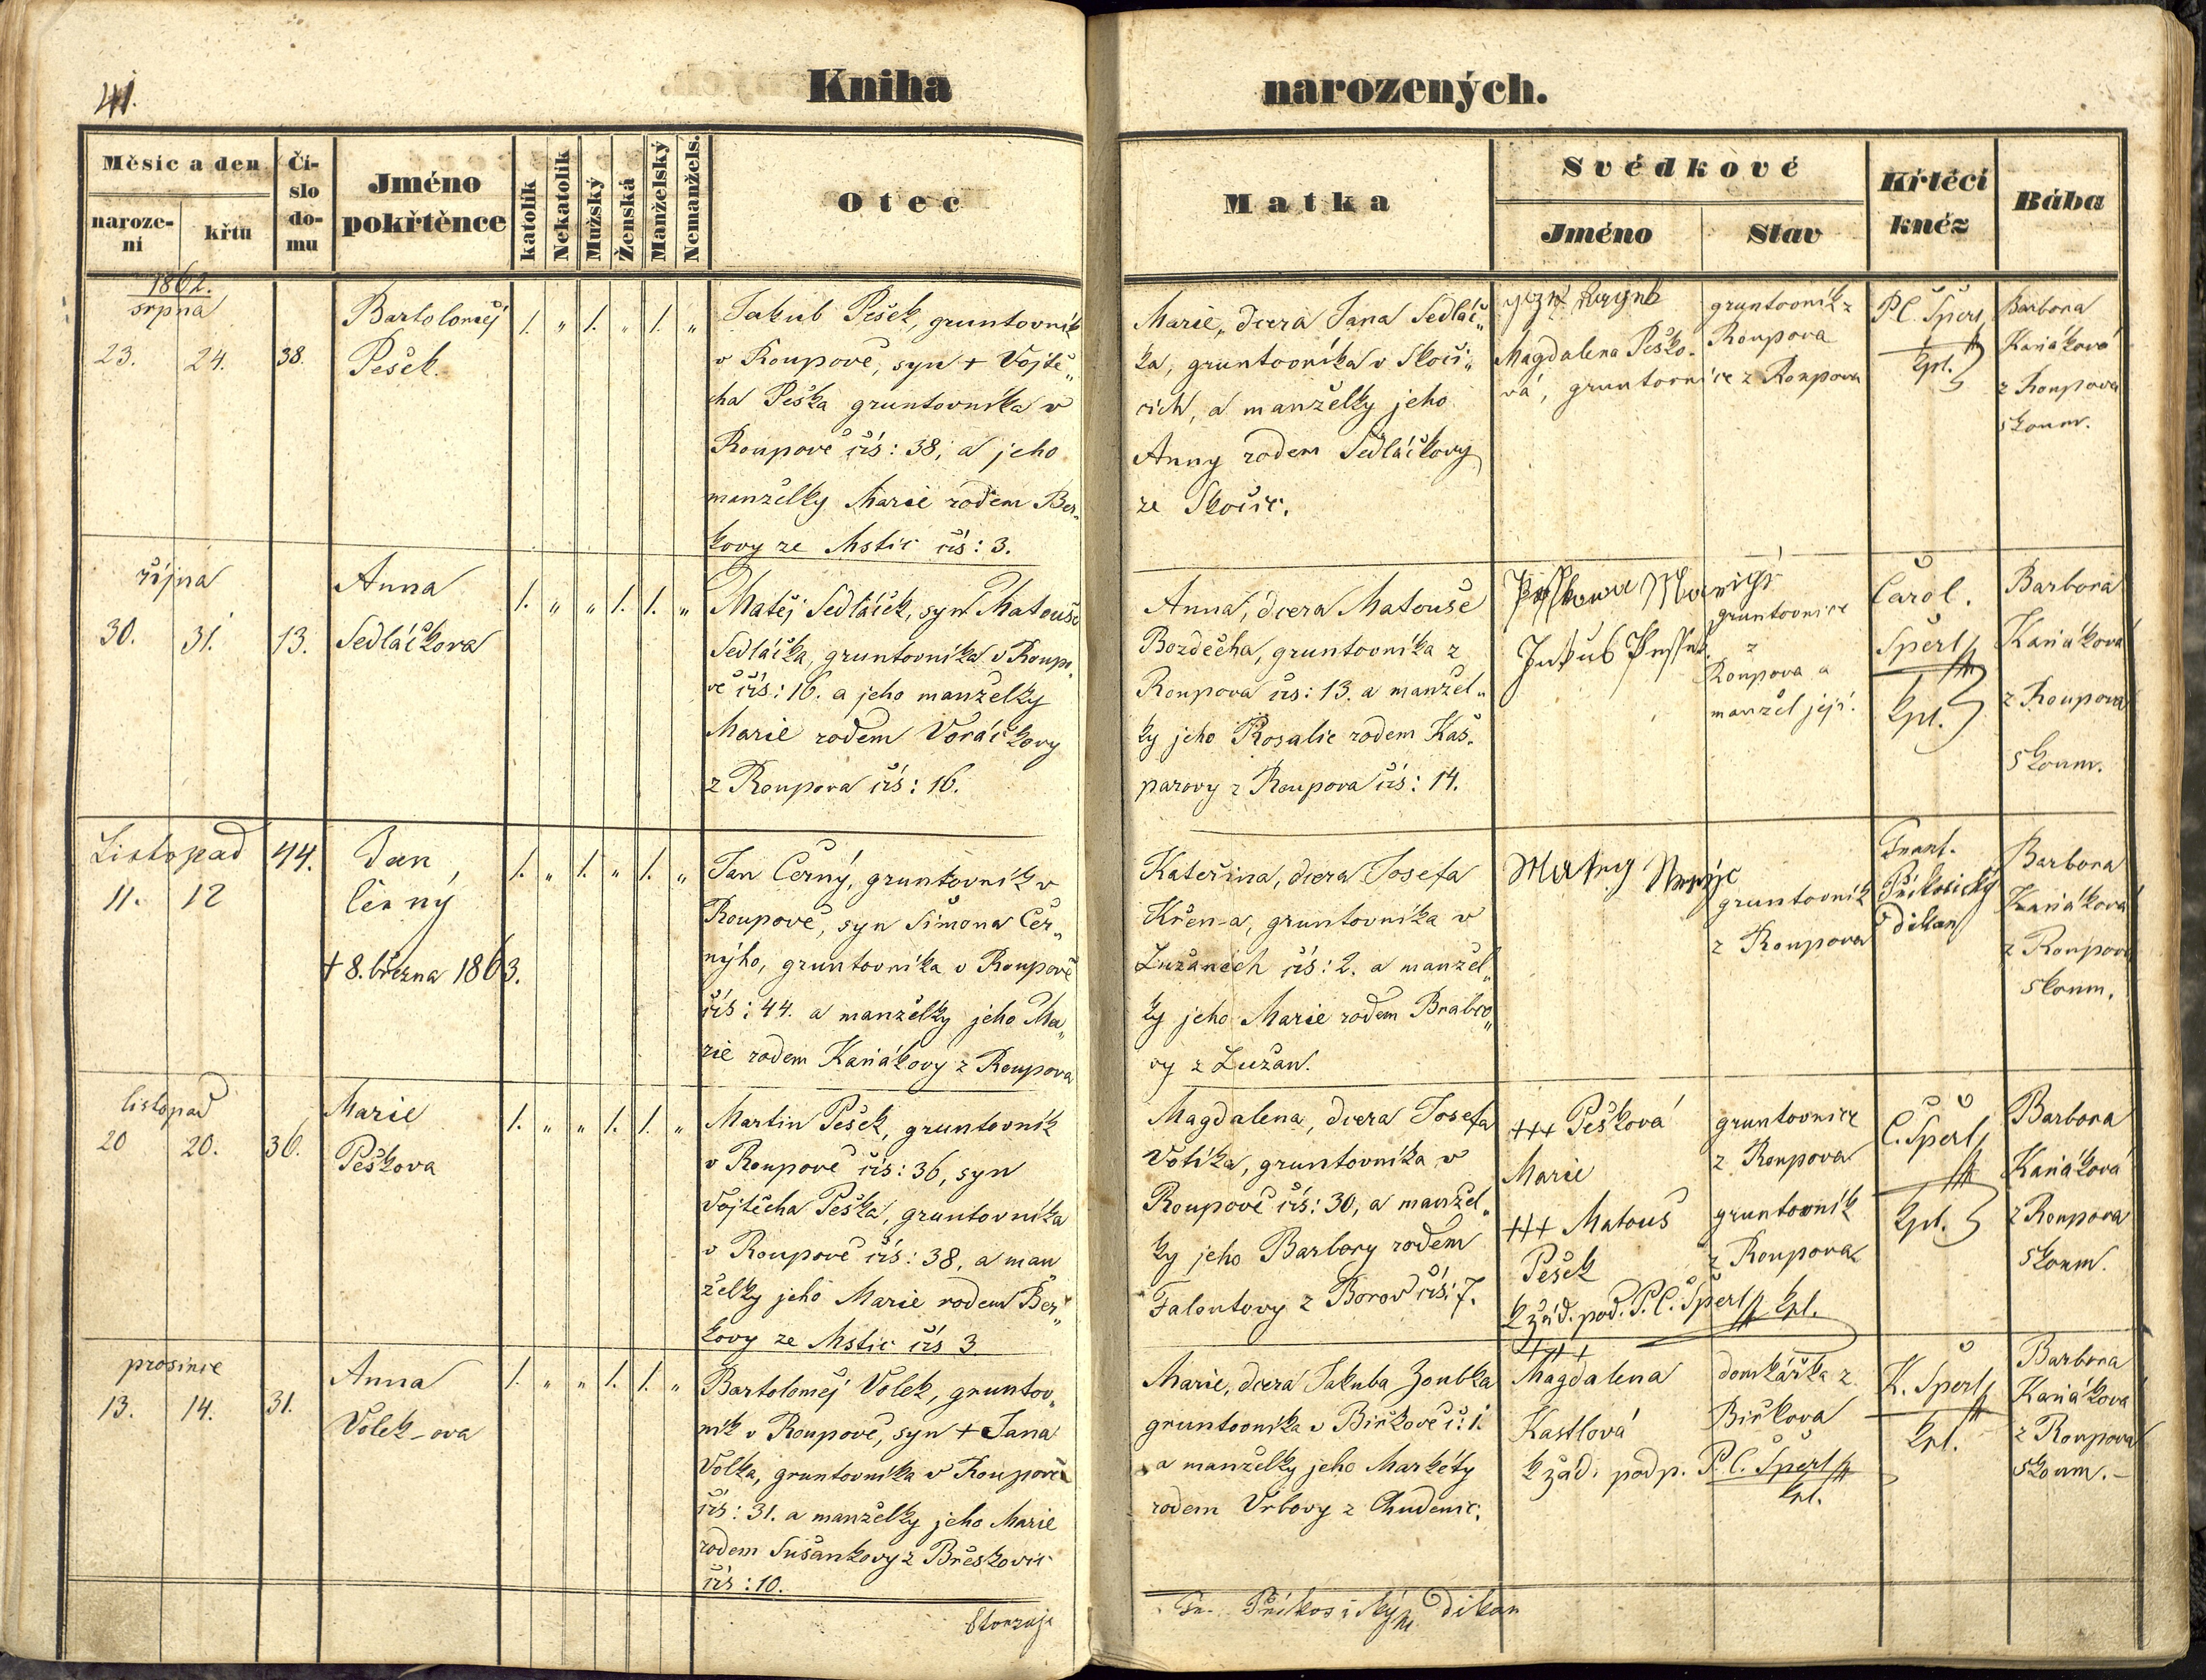 41.
Kniha
narozených.
Měsíc a den
naroze-
ní
křtu
Čí-
slo
do-
mu
Jméno
pokřtěnce
katolík
Nekatolík
Mužský
Ženská
Manželský
Nemanžels.
Otec
Matka
Svědkové
Jméno
Stav
Křtěcí
kněz
Bába
1862.
srpna
23. 24. 38.
Bartoloměj
Pešek.
1. „ 1. „ 1. „
Jakub Pešek, gruntovník
v Roupově, syn + Vojtě„
cha Peška gruntovníka v
Roupově čís: 38, a jeho
manželky Marie rodem Ber„
kovy ze Mstic čís: 3.
Marie, dcera Jana Sedláč„
ka, gruntovníka v Skoči„
cích, a manželky jeho
Anny rodem Sedláčkovy
ze Skočic.
Magdalena Peško-
vá, gruntovnice z Roupova
gruntovník z
Roupova
P.C. Šperl
kpl.
Barbora
Kaňáková
z Roupova
skoum.
října
30. 31. 13.
Anna
Sedláčkova
1. „ „ 1. 1. „
Matěj Sedláček, syn Matouše
Sedláčka, gruntovníka v Roupo„
vě čís: 16. a jeho manželky
Marie rodem Voráčkovy
z Roupova čís: 16.
Anna, dcera Matouše
Bozděcha, gruntovníka z
Roupova čís: 13. a manžel„
ky jeho Rosalie rodem Kaš-
parovy z Roupova čís: 14.
Jakub
gruntovnice
z
Roupova a
manžel její.
Carol.
Šperl
kpl.
Barbora
Kaňáková
z Roupova
skoum.
Listopad
11. 12 44.
Jan
Černý
+ 8. března 1863.
1. „ 1. „ 1. „
Jan Černý, gruntovník v
Roupově, syn Šimona Čer„
nýho, gruntovníka v Roupově
čís: 44. a manželky jeho Ma„
rie rodem Kaňákovy z Roupova
Kateřina, dcera Josefa
Křena, gruntovníka v
Lužanech čís: 2. a manžel„
ky jeho Marie rodem Brabco„
vy z Lužan.
gruntovník
z Roupova
Frant.
Příkosický
děkan
Barbora
Kaňáková
z Roupova
skoum.
listopad
20 20. 36.
Marie
Peškova
1. „ „ 1. 1. „
Martin Pešek, gruntovník
v Roupově čís: 36, syn
Vojtěcha Peška, gruntovníka
v Roupově čís: 38, a man
želky jeho Marie rodem Ber„
kovy ze Mstic čís 3.
Magdalena, dcera Josefa
Votíka, gruntovníka v
Roupově čís: 30, a manžel„
ky jeho Barbory rodem
Faloutovy z Borov čís: 7.
+++ Pešková
Marie
+++ Matouš
Pešek
k žád. pod. P.C. Šperl kpl.
gruntovnice
z Roupova
gruntovník
z Roupova
C. Šperl
kpl.
Barbora
Kaňáková
z Roupova
skoum.
prosince
13. 14. 31.
Anna
Volek-ova
1. „ „ 1. 1. „
Bartoloměj Volek, gruntov„
ník v Roupově, syn + Jana
Volka, gruntovníka v Roupově
čís: 31. a manželky jeho Marie
rodem Sušankovy z Břeskovic
čís: 10.
Marie, dcera Jakuba Zoubka
gruntovníka v Biřkově č: 1.
a manželky jeho Markéty
rodem Vrbovy z Chudenic.
+++
Magdalena
Kastlová
k žád. podp. P.C. Šperl
kpl.
domkářka z
Biřkova
K. Šperl
kpl.
Barbora
Kaňáková
z Roupova
skoum.
Stvrzuje
Fr. Příkosický děkan